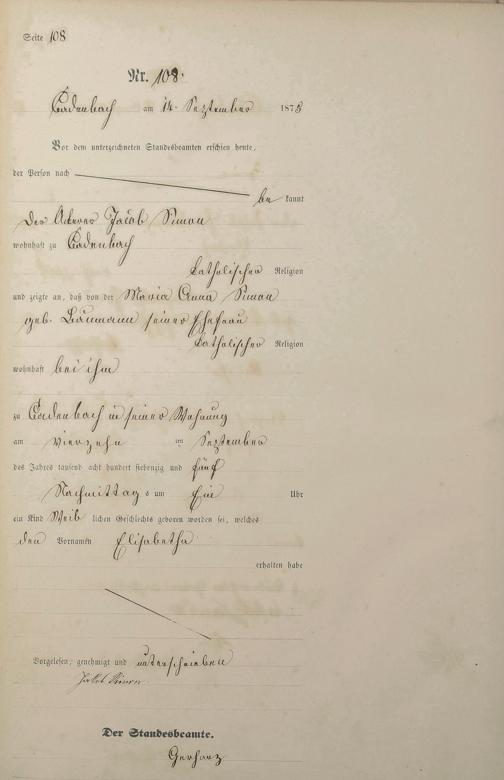 Seite 108
Nr. 108.
Cadenbach am 14. September 1875
Vor dem unterzeichneten Standesbeamten erschien heute,
der Person nach
be kannt
der Ackerer Jacob Simon
wohnhaft zu Cadenbach
katholischer Religion
und zeigte an, daß von der Maria Anna Simon
geb. Baumann seiner Ehefrau
katholischer Religion
wohnhaft bei ihm
zu Cadenbach in seiner Wohnung
am vierzehn ten September
des Jahres tausend acht hundert siebenzig und fünf
Nachmittag s um Ein Uhr
ein Kind Weib lichen Geschlechts geboren worden sei, welches
den Vornamen Elisabetha
erhalten habe
Vorgelesen, genehmigt und unterschrieben
Jakob Simon
Der Standesbeamte.
Gerharz